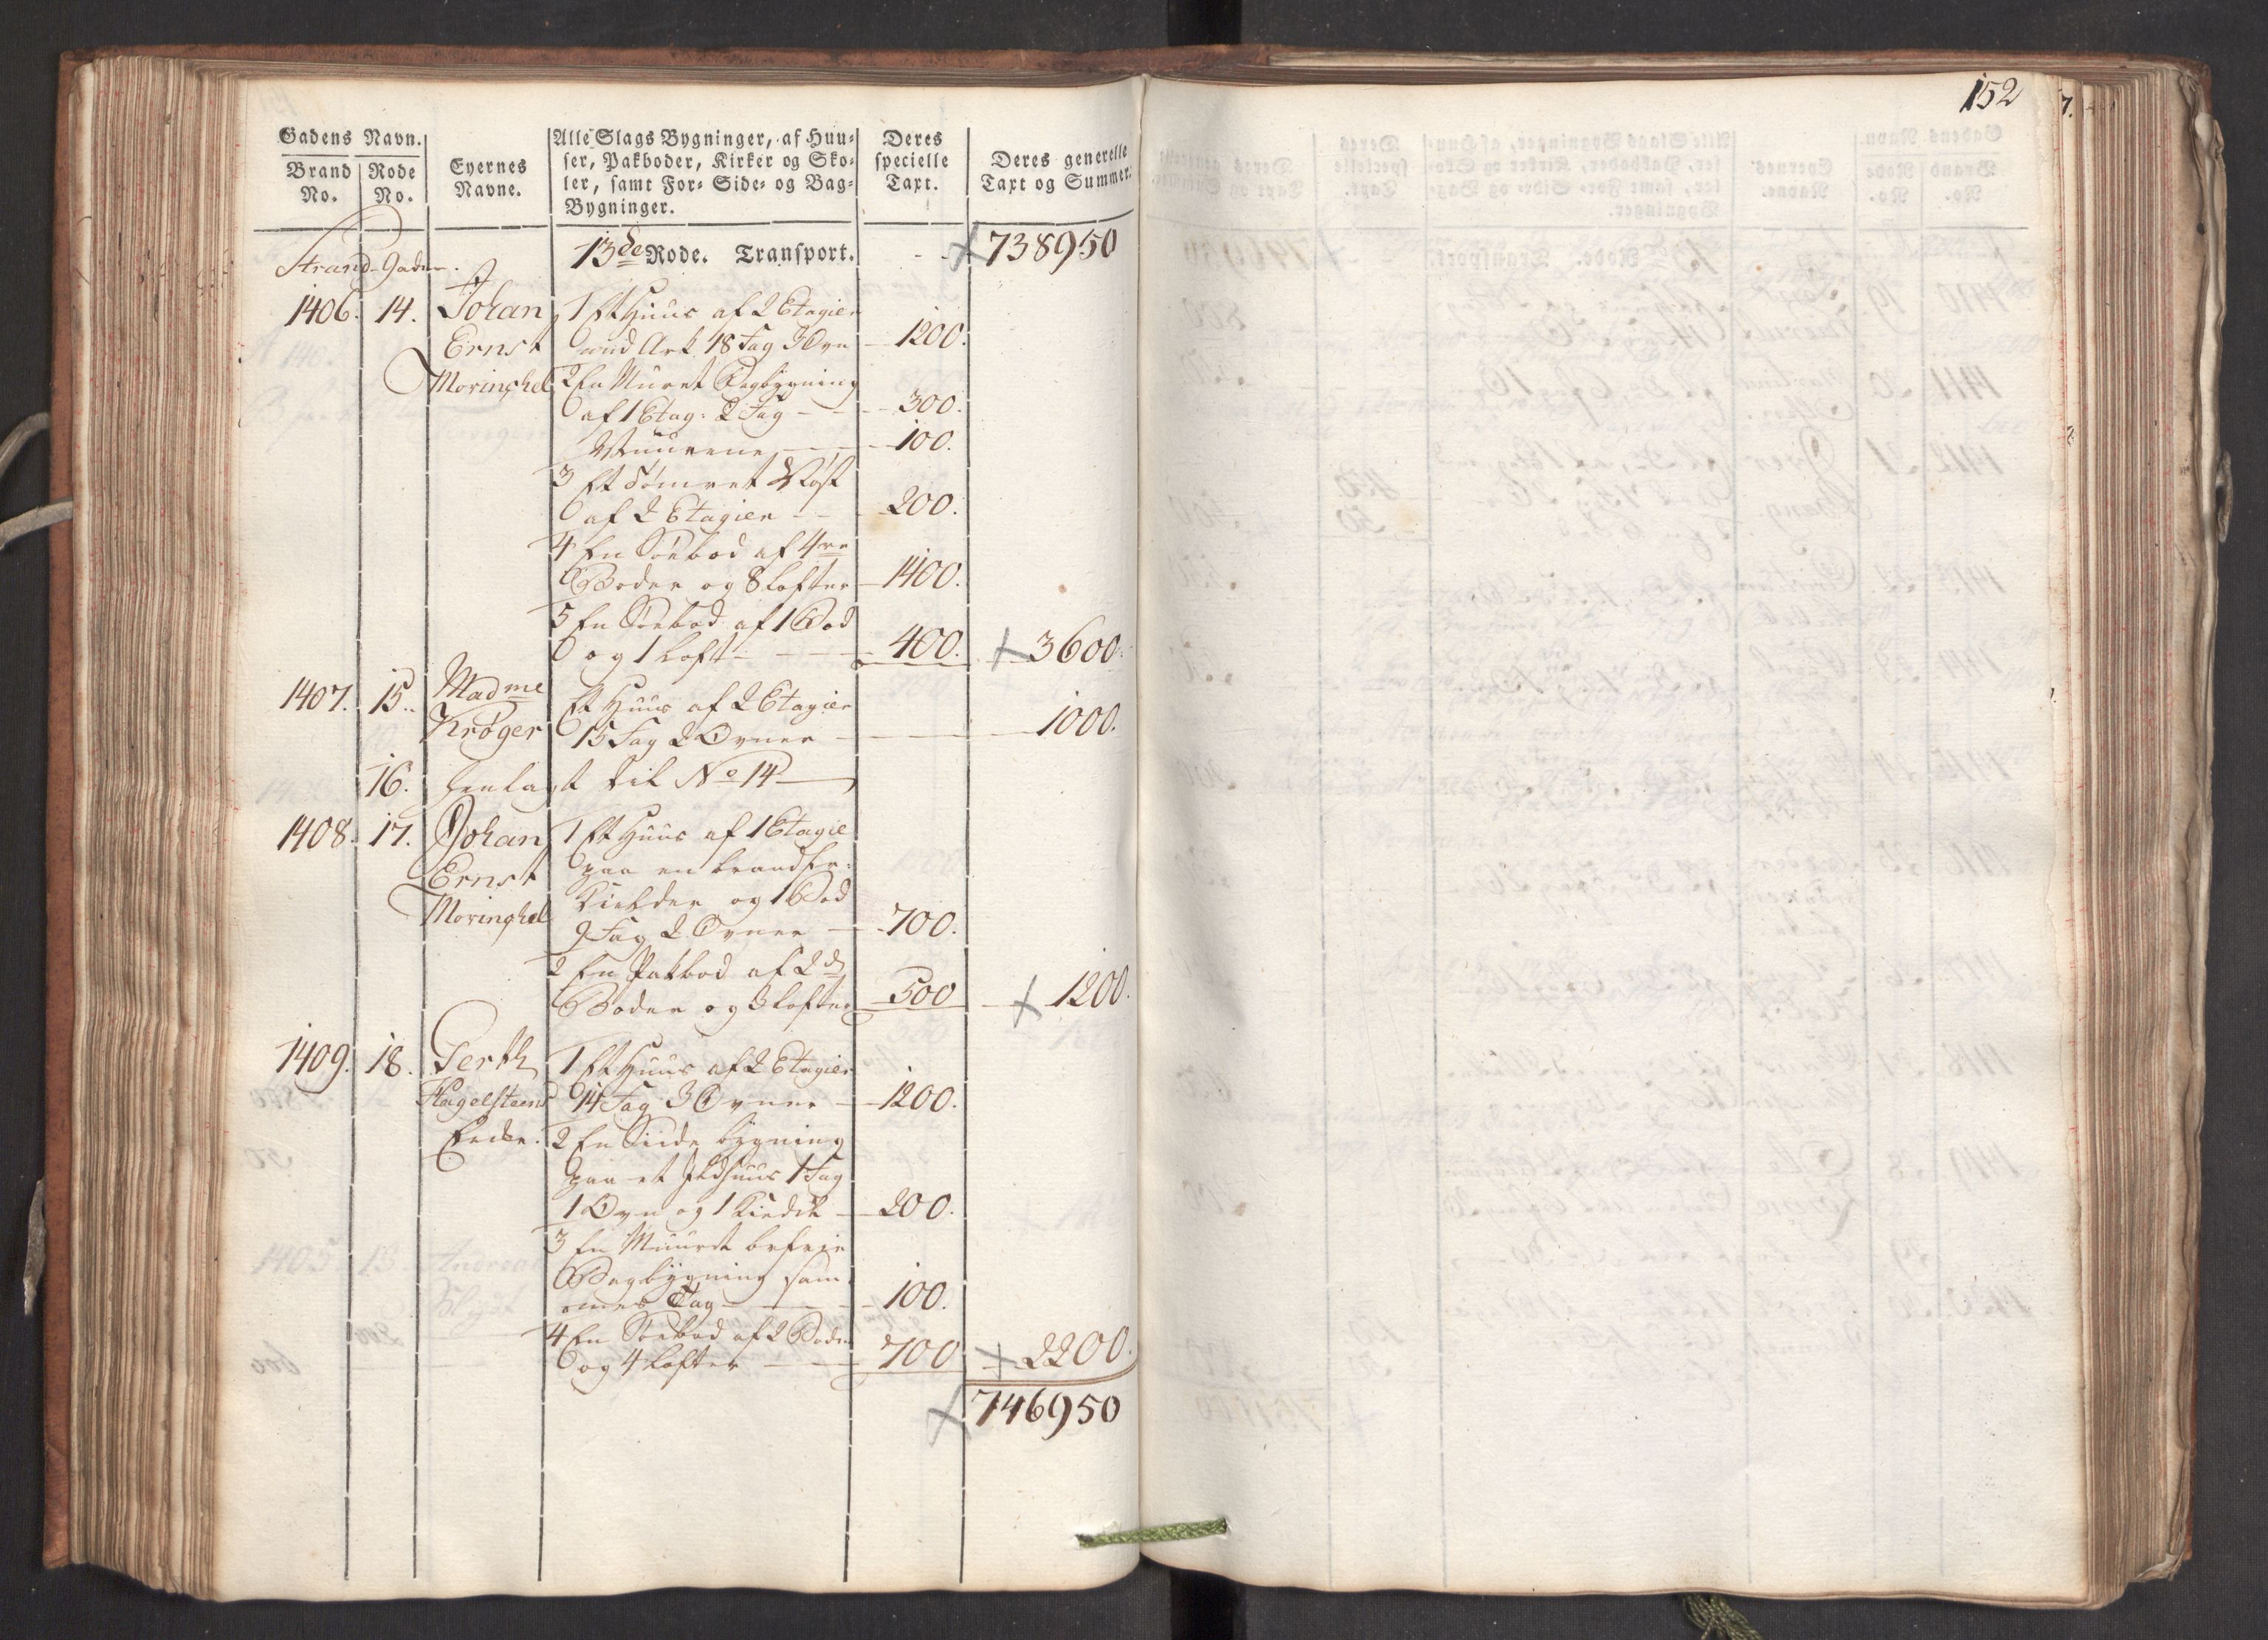 152
Gadens Navn.
Brand No.
Rode No.
Eyernes Navne.
Alle Slags Bygninger, af Huu-
ser, Pakboder, Kirker og Sko-
ler, samt For- Side- og Bag-
Bygninger.
Deres specielle Taxt.
Deres generelle Taxt og Summer.
Strand-Gaden.
13de Rode. Transport. - - 738950
1406. 14. Johan 1 Et Huus af 2 Etagier
Ernst med Ark 18 Fag 3 Ovn - 1200.
Moringhel 2 En Muret Bagbygning
af 1 Etag: 2 Fag - - - 300.
Muurene - - - 100.
3 Et Tømret
af 2 Etagier - - 200.
4 En Søebod af 4re
Boder og 8 Lofter - 1400.
5 En Søebod af 1 Bod
og 1 Loft - - - 400. 3600.
1407. 15. Madme Et Huus af 2 Etagier
Krøger 15 Fag 2 Ovner - - - 1000.
16. henlagt til No 14
1408. 17. Johan 1 Et Huus af 1 Etagie
Ernst paa en brandfr:
Moringhel Kielder og 1 Bod
9 Fag 2 Ovner - 700.
2 En Pakbod af 2de
Boder og 3 Lofter 500 1200.
1409. 18. Gerth 1 Et Huus af 2 Etagier
Hagelsteens 14 Fag 3 Ovner - 1200.
Enke. 2 En Siide bygning
paa et Ildhuus 1 Fag
1 Ovn og 1 Kiedel - 200.
3 En Muuret
Bagbygning sam
Tag - - - 100.
4 En Søebod af 2 Boder
og 4 Lofter - - 700 2200.
746950